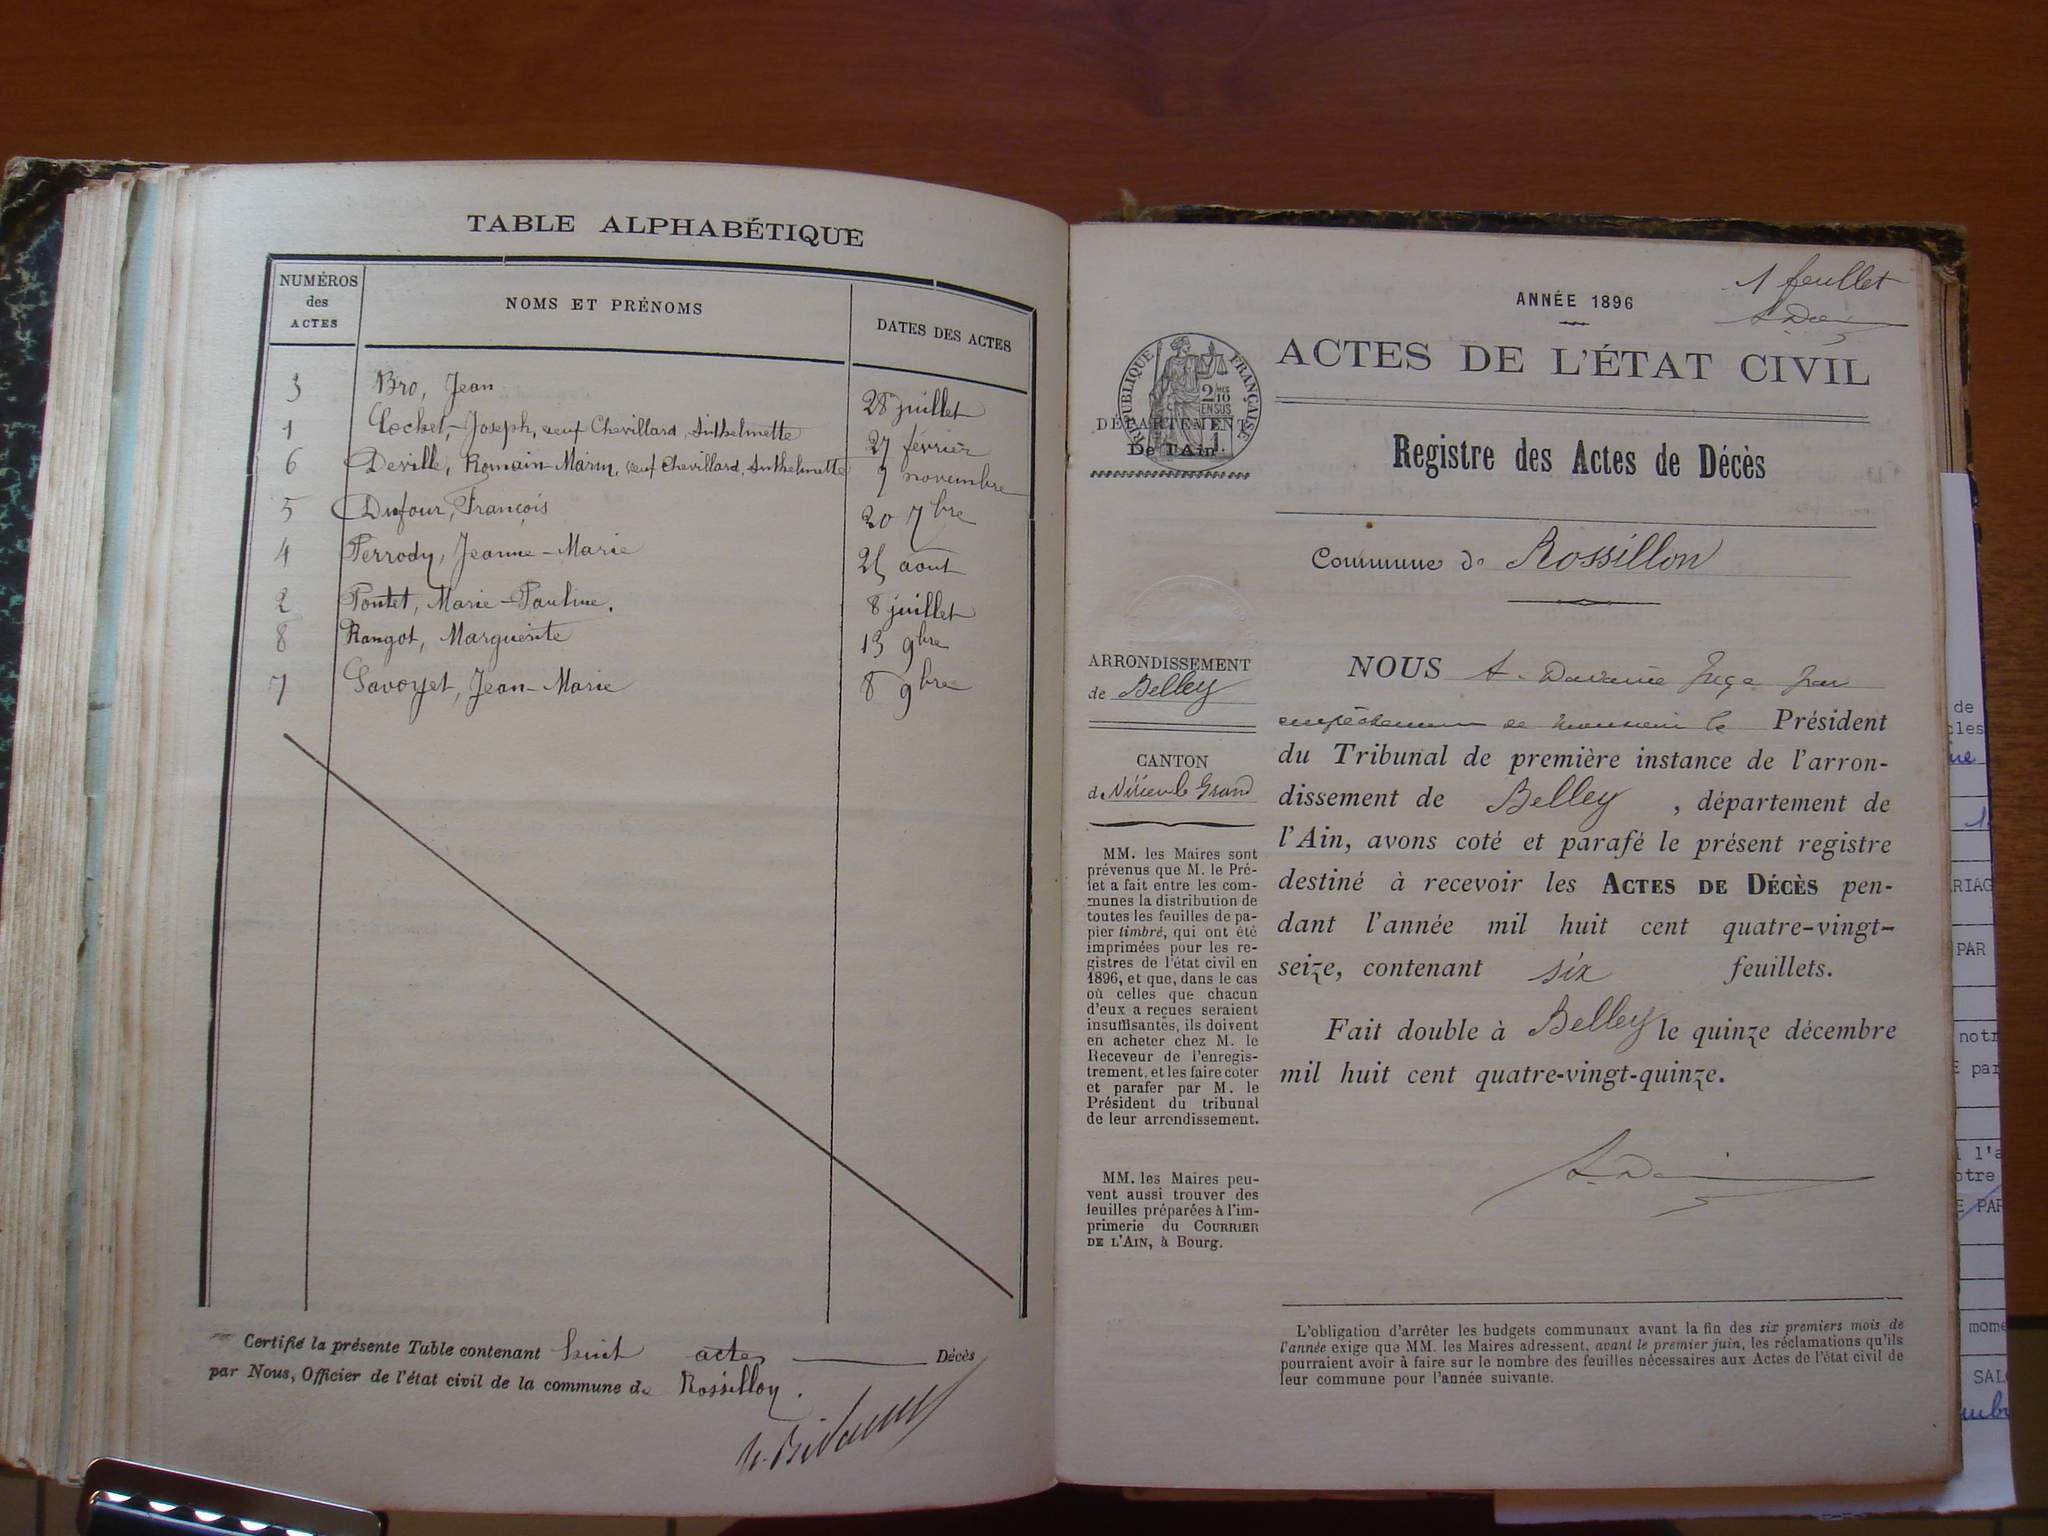 TABLE ALPHABÉTIQUE
NUMÉROS des ACTES
NOMS ET PRÉNOMS
DATES DES ACTES
3 Bro, Jean 28 juillet
1 Cochet, Joseph, veuf Chevillard, Anthelmette 27 février
6 Deville, Romain-Marin, veuf Chevillard, Anthelmette 7 novembre
5 Dufour, François 20 7bre
4 Perrody, Jeanne-Marie 25 aout
2 Pontet, Marie-Pauline. 8 juillet
8 Rangot, Marguerite 13 9bre
7 Savoyet, Jean-Marie 8 9bre
Certifié la présente Table contenant huit actes Décès
par Nous, Officier de l'état civil de la commune de Rossillon.
1 feuillet
ANNÉE 1896
ACTES DE L'ÉTAT CIVIL
RÉPUBLIQUE FRANÇAISE
2/10 EN SUS
DÉPARTEMENT
De l'Ain.
Registre des Actes de Décès
Commune de Rossillon
ARRONDISSEMENT
de Belley
CANTON
de Virieu le Grand
MM. les Maires sont
prévenus que M. le Pré-
fet a fait entre les com-
munes la distribution de
toutes les feuilles de pa-
pier timbré, qui ont été
imprimées pour les re-
gistres de l'état civil en
1896, et que, dans le cas
où celles que chacun
d'eux a reçues seraient
insuffisantes, ils doivent
en acheter chez M. le
Receveur de l'enregis-
trement, et les faire coter
et parafer par M. le
Président du tribunal
de leur arrondissement.
MM. les Maires peu-
vent aussi trouver des
feuilles préparées à l'im-
primerie du COURRIER
DE L'AIN, à Bourg.
NOUS A. Juge par
empêchement de monsieur le Président
du Tribunal de première instance de l'arron-
dissement de Belley, département de
l'Ain, avons coté et parafé le présent registre
destiné à recevoir les ACTES DE DÉCÈS pen-
dant l'année mil huit cent quatre-vingt-
seize, contenant six feuillets.
Fait double à Belley le quinze décembre
mil huit cent quatre-vingt-quinze.
L'obligation d'arrêter les budgets communaux avant la fin des six premiers mois de
l'année exige que MM. les Maires adressent, avant le premier juin, les réclamations qu'ils
pourraient avoir à faire sur le nombre des feuilles nécessaires aux Actes de l'état civil de
leur commune pour l'année suivante.